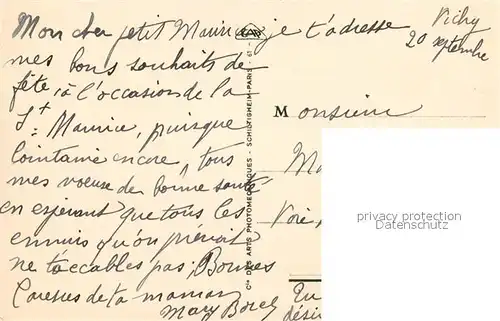 Mon cher petit Maurice je t'adresse
mes bons souhaits de
fête, à l'occasion de la
St Maurice, puisque
lointaine encore, tous
mes voeux de bonne santé
en espérant que tous les
ennuis qu'on prévoit
ne t'accables pas; Bonnes
Caresses de ta maman
Mary Borel
Vichy
20 septembre
Cie DES ARTS PHOTOMECANIQUES - SCHILTIGHEIM-PARIS - 61 -
Monsieur
Ma
Voie,
privacy protection
Datenschutz
En
désir